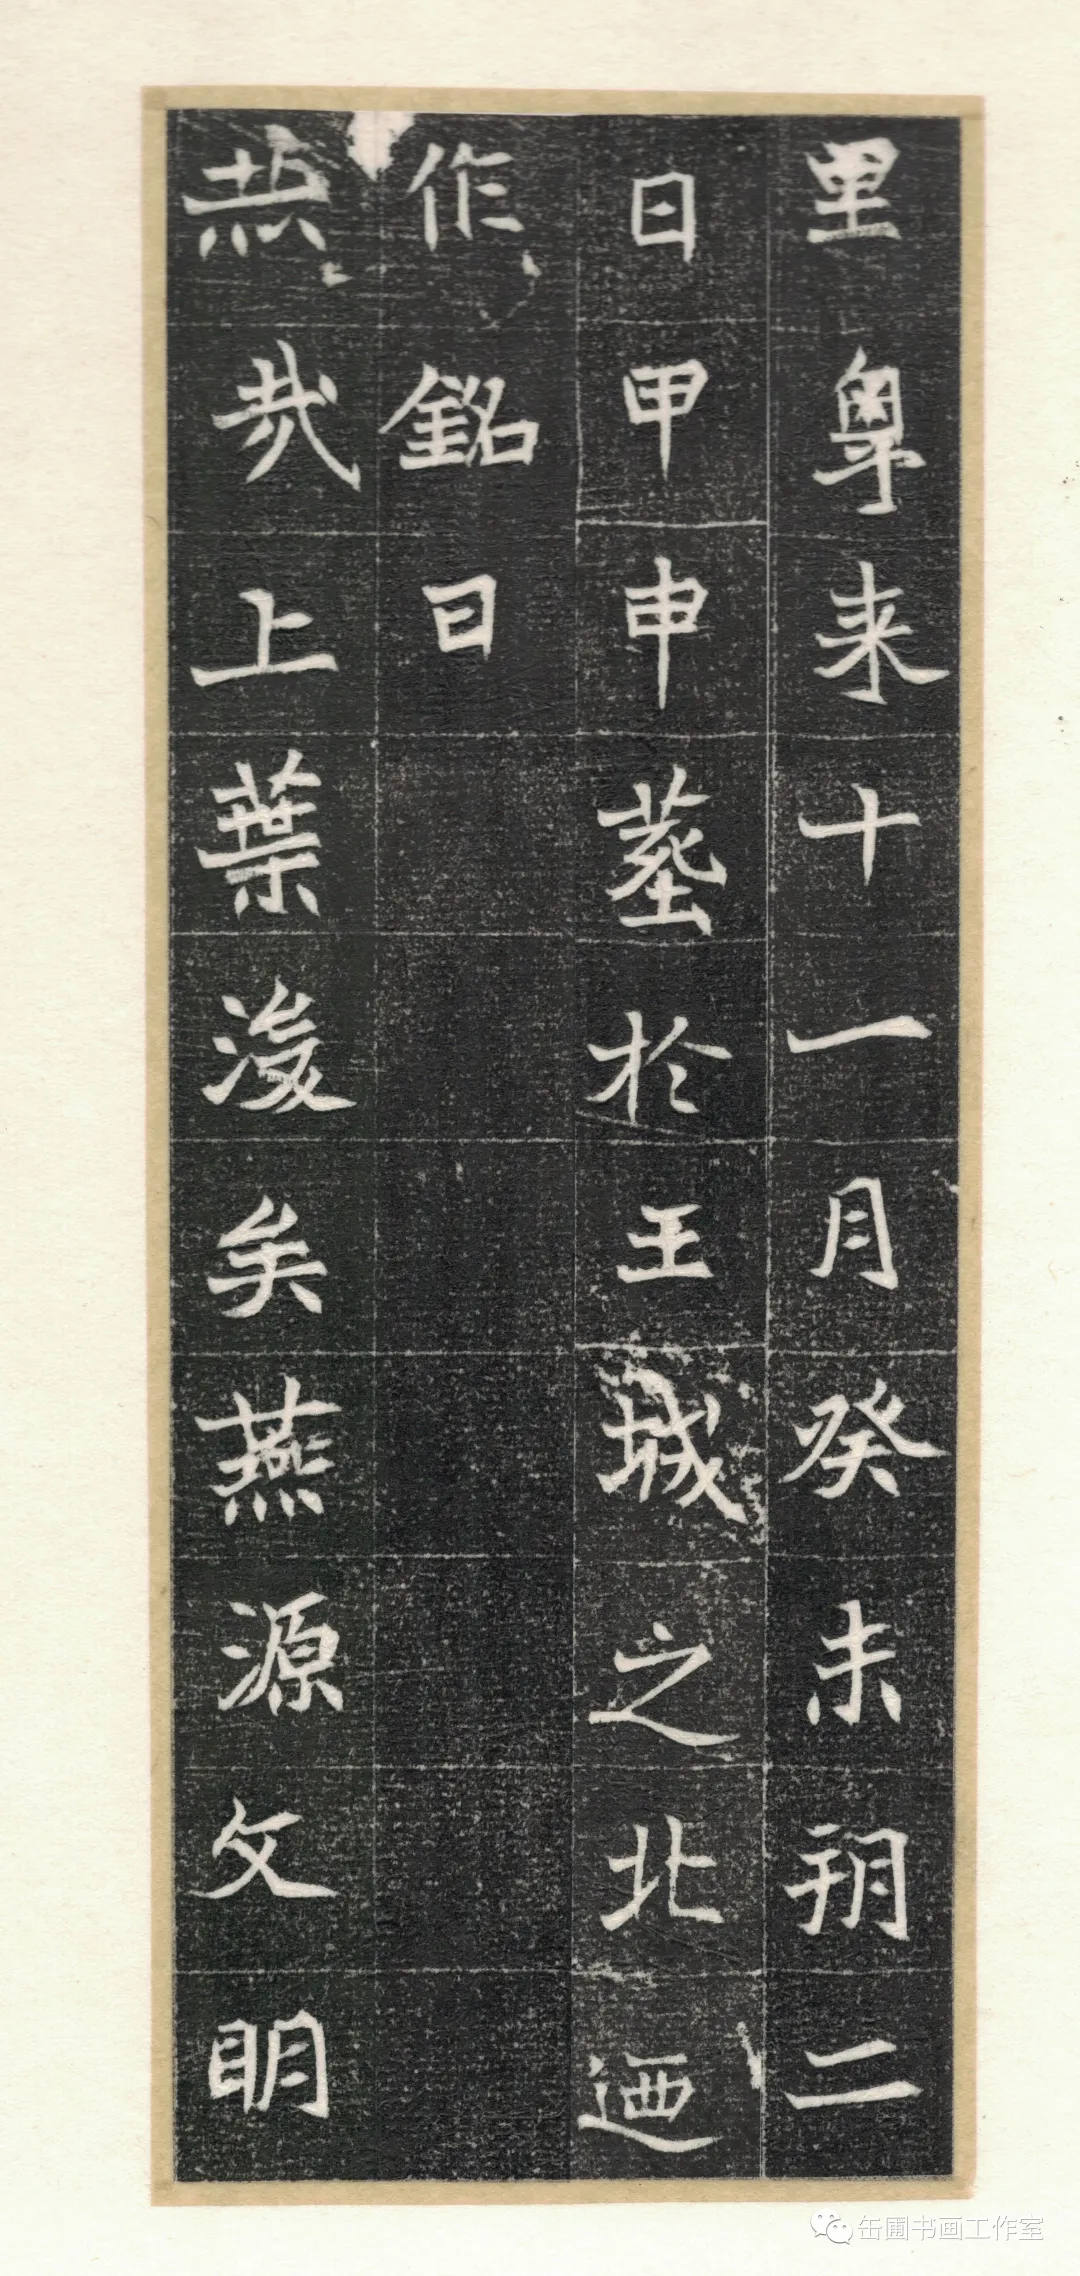 里粤来十一月癸未朔二
日甲申葬於王城之北迺
作銘曰
恭哉上葉浚矣燕源文明
缶圃书画工作室